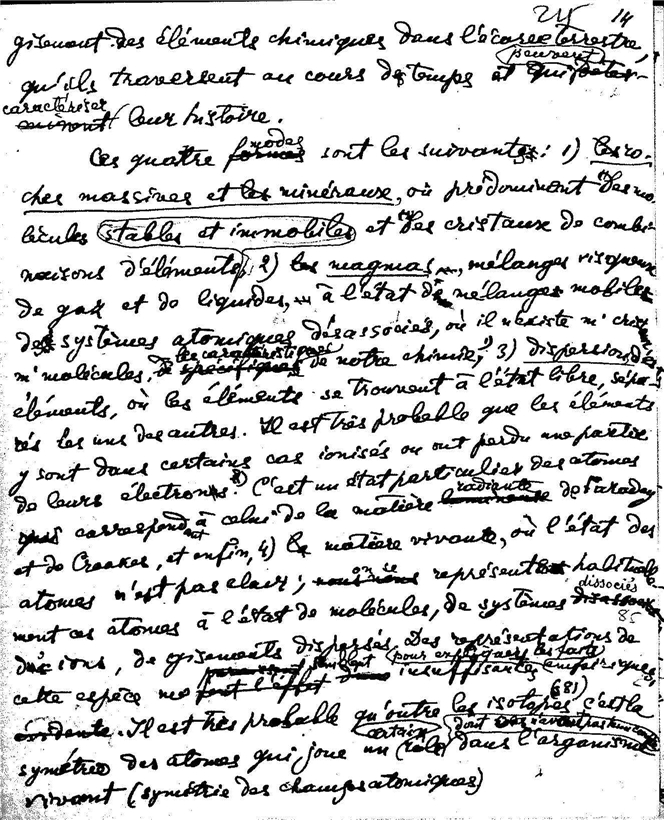 14
gisement des éléments chimiques dans l'écorce terrestre,
qu'ils traversent au cours des temps et qui peuvent
caractériser leur histoire.
Ces quatre modes sont les suivants : 1) les ro-
ches massives et les minéraux, où prédominent des mo-
lécules stables et immobiles et des cristaux de combi-
naisons d'éléments; 2) les magmas, mélanges visqueux
de gaz et de liquides, à l'état de mélanges mobiles
des systèmes atomiques désassociés, où il n'existe ni cristaux
ni molécules, les caractéristiques de notre chimie; 3) dispersion des
éléments, où les éléments se trouvent à l'état libre, sépa-
rés les uns des autres. Il est très probable que les éléments
y sont dans certains cas ionisés ou ont perdu une partie
de leurs électrons. C'est un état particulier des atomes
correspondant à celui de la matière radiante de Faraday
et de Crookes, et enfin, 4) la matière vivante, où l'état des
atomes n'est pas clair; on se représente habituelle-
ment ces atomes à l'état de molécules, de systèmes dissociés
85
d'ions, de gisements dispersés. Des représentations de
cette espèce me semblent insuffisantes pour expliquer les faits empiriques.
Il est très probable qu'outre les isotopes (§81) c'est la
symétrie des atomes qui joue un certain rôle dans l'organisme
vivant (symétrie des champs atomiques)